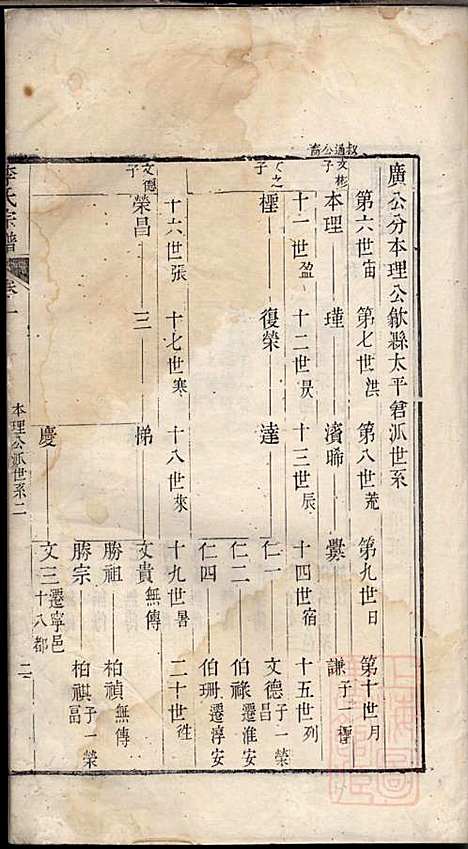 廣公分本理公歙縣太平會派世系
第六世宙 第七世洪 第八世荒 第九世日 第十世月
叔通公裔
文彬子
本理 瑾 濱睎 㸑 謙子一
十一世盈 十二世昃 十三世辰 十四世宿 十五世列
之子
檉 復榮 達 仁一 文德子一榮昌
仁二 伯祿遷淮安
仁四 伯珊遷淳安
十六世張 十七世寒 十八世來 十九世暑 二十世往
文德子
榮昌 三 悌 文貴無傳
勝祖 柏禎無傳
勝宗 柏祺子一榮冨
慶 文三遷寧邑十八都
李氏宗譜 卷一 本理公派世系二 二